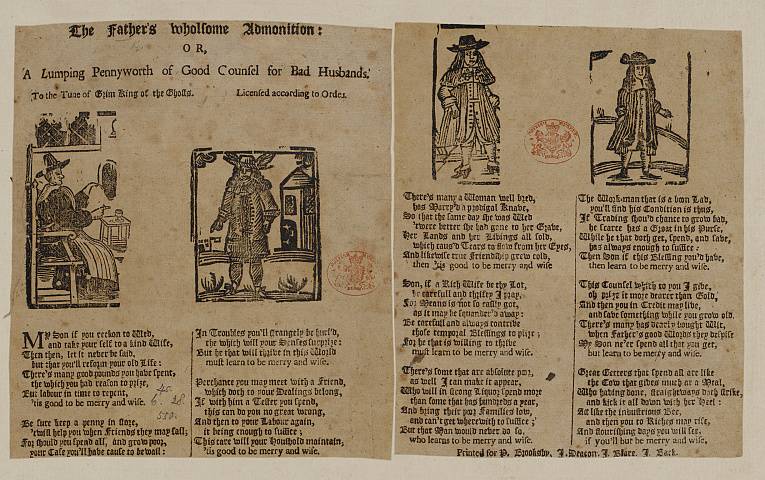 The Father's wholsome Admonition:
OR,
A Lumping Pennyworth of Good Counsel for Bad Husbands.
To the Tune of Grim King of the Ghosts. Licensed according to Order.
MY Son if you reckon to Wed,
and take your self to a kind Wife,
Then then, let it never be said,
but that you'll reform your old Life:
There's many good pounds you have spent,
the which you had reason to prize,
But labour in time to repent,
'tis good to be merry and wise.
Be sure keep a penny in store,
'twill help you when Friends they may fail;
For should you spend all, and grow poor,
your Case you'll have cause to bewail:
In Troubles you'll strangely be hurl'd,
the which will your Senses surprize:
But he that will thrive in this World
must learn to be merry and wise.
Perchance you may meet with a Friend,
which doth to your Dealings belong,
If with him a Tester you spend,
this can do you no great wrong,
And then to your Labour again,
it being enough to suffice;
This care will your Houshold maintain,
'tis good to be merry and wise.
There's many a Woman well bred,
has Marry'd a prodigal Knave,
So that the same day she was Wed
'twere better she had gone to her Grave,
Her Lands and her Livings all sold,
which caus'd Tears to flow from her Eyes,
And likewise true Friendship grew cold,
then 'tis good to be merry and wise
Son, if a Rich Wife be thy Lot,
be carefull and thrifty I pray,
For Means is not so easily got,
as it may be squander'd away:
Be carefull and always contrive
those temporal Blessings to prize;
For he that is willing to thrive
must learn to be merry and wise.
There's some that are absolute poor,
as well I can make it appear,
Who will in strong Liquor spend more
than some that has hundreds a year,
And bring their poor Families low,
and can't get wherewith to suffice;
But that Man would never do so,
who learns to be merry and wise.
The Work-man that is a boon Lad,
you'll find his Condition is thus,
If Trading shou'd chance to grow bad,
he scarce has a Groat in his Purse,
While he that doth get, spend, and save,
has always enough to suffice:
Then Son if this Blessing you'd have,
then learn to be merry and wise.
This Counsel which to you I give,
oh prize it more dearer than Gold,
And then you in Credit may live,
and save something while you grow old.
There's many has dearly bought Wit,
when Father's good Words they despise
My Son ne'er spend all that you get,
but learn to be merry and wise.
Great Getters that spend all are like
the Cow that gives much at a Meal,
Who having done, straightways doth strike,
and kick it all down with her Heel:
Act like the industrious Bee,
and then you to Riches may rise,
And flourishing days you will see,
if you'll but be merry and wise.
Printed for P. Brooksby, J. Deacon, J. Blare, J. Back.